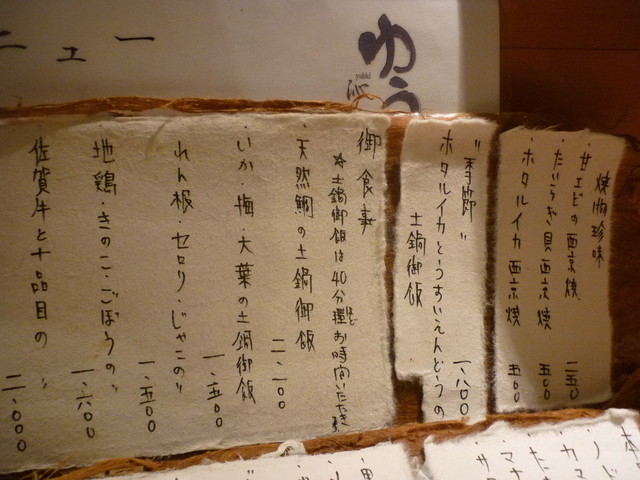 ニュー
ゆう
yuuki
焼物珍味
・甘エビの西京焼 二五〇
・たいらぎ貝西京焼 五〇〇
・ホタルイカ西京焼 五〇〇
〃季節〃
ホタルイカとうすいえんどうの
土鍋御飯 一、八〇〇
御食事
☆土鍋御飯は40分程お時間いただきます
・天然鯛の土鍋御飯 二、一〇〇
・いか・梅・大葉の土鍋御飯 一、五〇〇
・れん根・セロリ・じゃこの〃 一、五〇〇
・地鶏・きのこ・ごぼうの〃 一、六〇〇
・佐賀牛と十品目の〃 二、〇〇〇